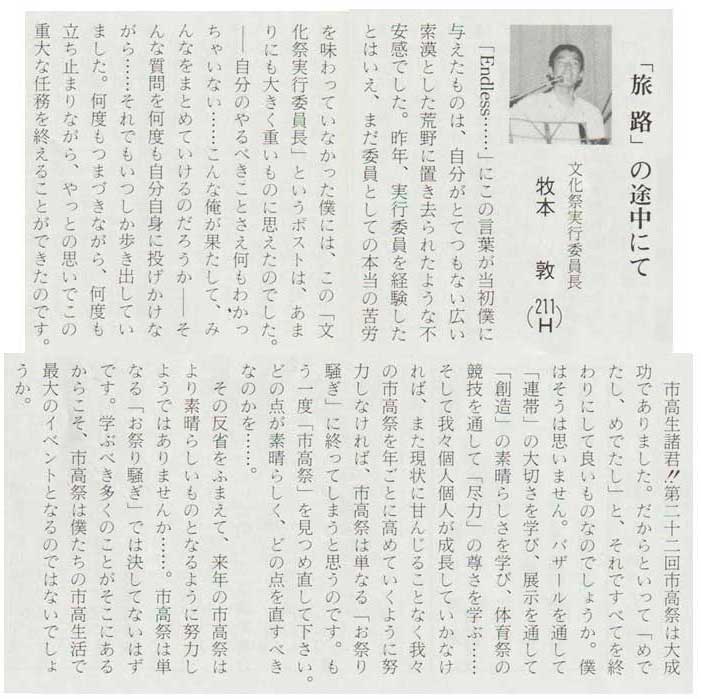 「旅路」の途中にて
文化祭実行委員長
牧本 敦
(211H)
「Endless……」にこの言葉が当初僕に
与えたものは、自分がとてつもない広い
索漠とした荒野に置き去られたような不
安感でした。昨年、実行委員を経験した
とはいえ、まだ委員としての本当の苦労
を味わっていなかった僕には、この「文
化祭実行委員長」というポストは、あま
りにも大きく重いものに思えたのでした。
──自分のやるべきことさえ何もわかっ
ちゃいない……こんな俺が果たして、み
んなをまとめていけるのだろうか──そ
んな質問を何度も自分自身に投げかけな
がら……それでもいつしか歩き出してい
ました。何度もつまづきながら、何度も
立ち止まりながら、やっとの思いでこの
重大な任務を終えることができたのです。
市高生諸君!!第二十二回市高祭は大成
功でありました。だからといって「めで
たし、めでたし」と、それですべてを終
わりにして良いものなのでしょうか。僕
はそうは思いません。バザールを通して
「連帯」の大切さを学び、展示を通して
「創造」の素晴らしさを学び、体育祭の
競技を通して「尽力」の尊さを学ぶ……
そして我々個人個人が成長していかなけ
れば、また現状に甘んじることなく我々
の市高祭を年ごとに高めていくように努
力しなければ、市高祭は単なる「お祭り
騒ぎ」に終ってしまうと思うのです。も
う一度「市高祭」を見つめ直して下さい。
どの点が素晴らしく、どの点を直すべき
なのかを……。
その反省をふまえて、来年の市高祭は
より素晴らしいものとなるように努力し
ようではありませんか……。市高祭は単
なる「お祭り騒ぎ」では決してないはず
です。学ぶべき多くのことがそこにある
からこそ、市高祭は僕たちの市高生活で
最大のイベントとなるのではないでしょ
うか。